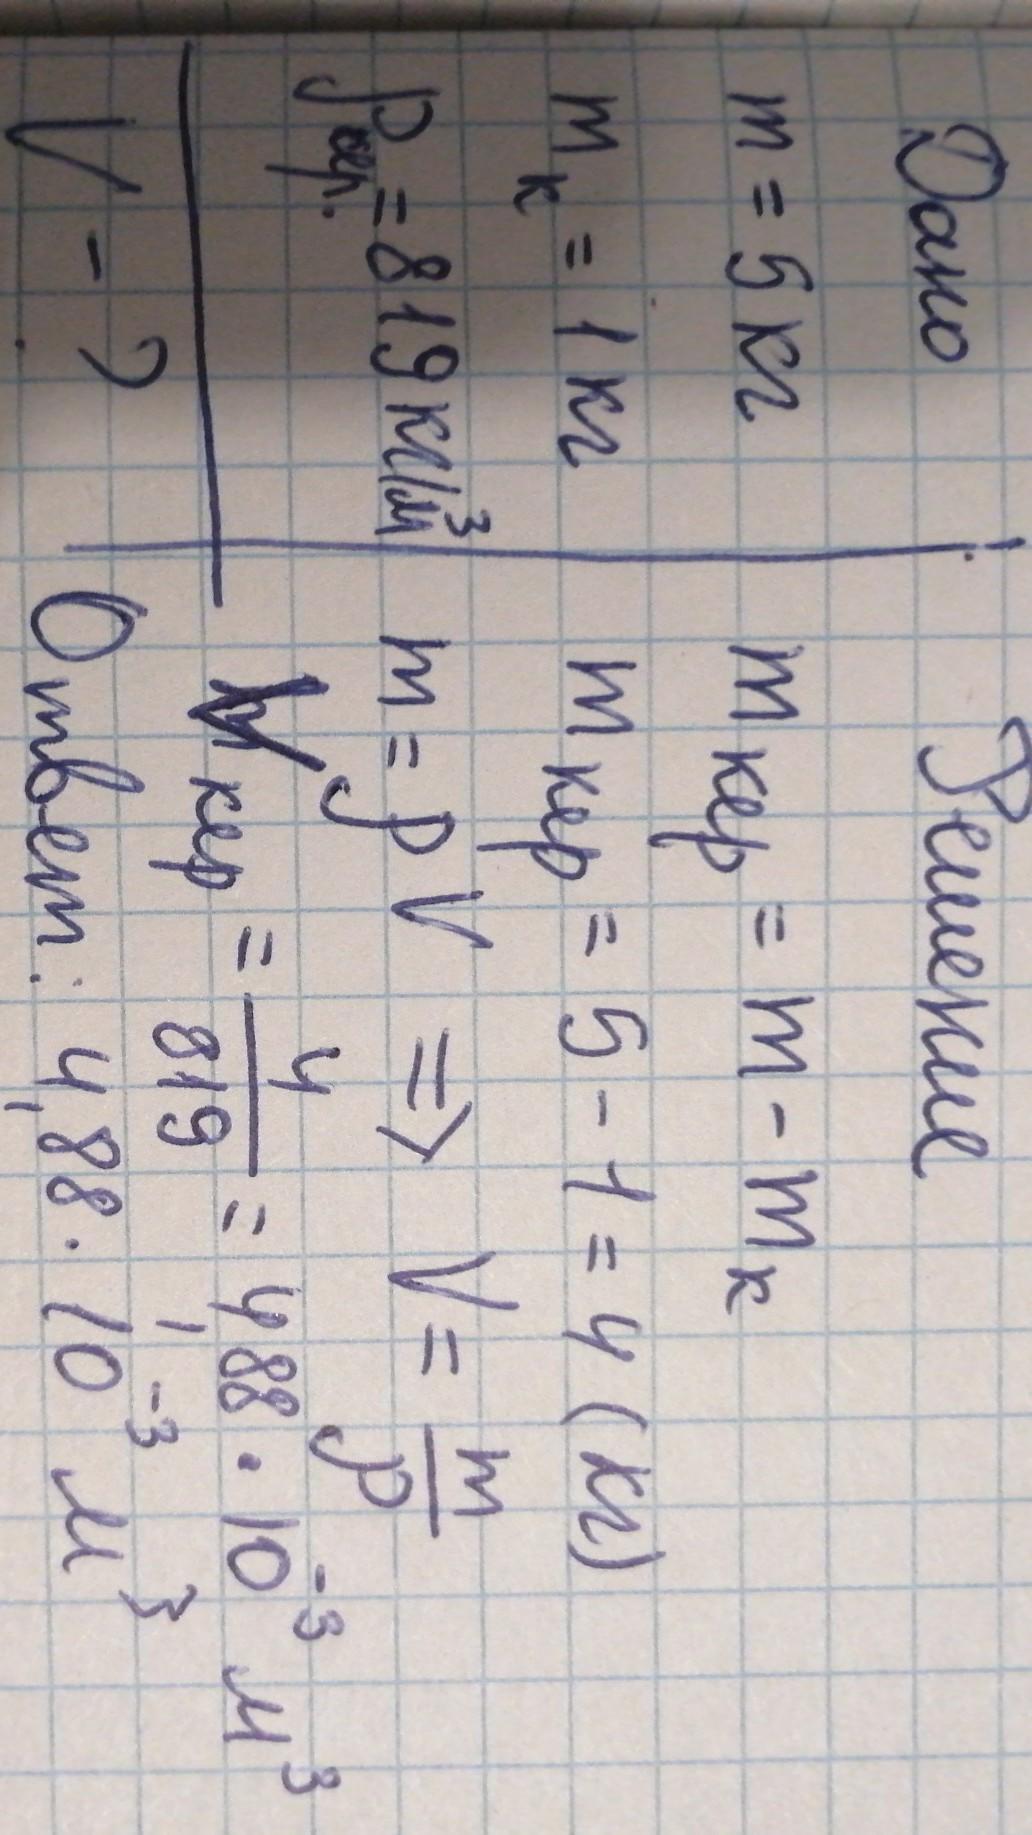 Дано:
m = 5 кг
mк = 1 кг
ρкер. = 819 кг/м³
V - ?
Решение
mкер = m - mк
mкер = 5 - 1 = 4 (кг)
m = ρV => V = m/ρ
Vкер = 4/819 = 4,88 · 10⁻³ м³
Ответ: 4,88 · 10⁻³ м³